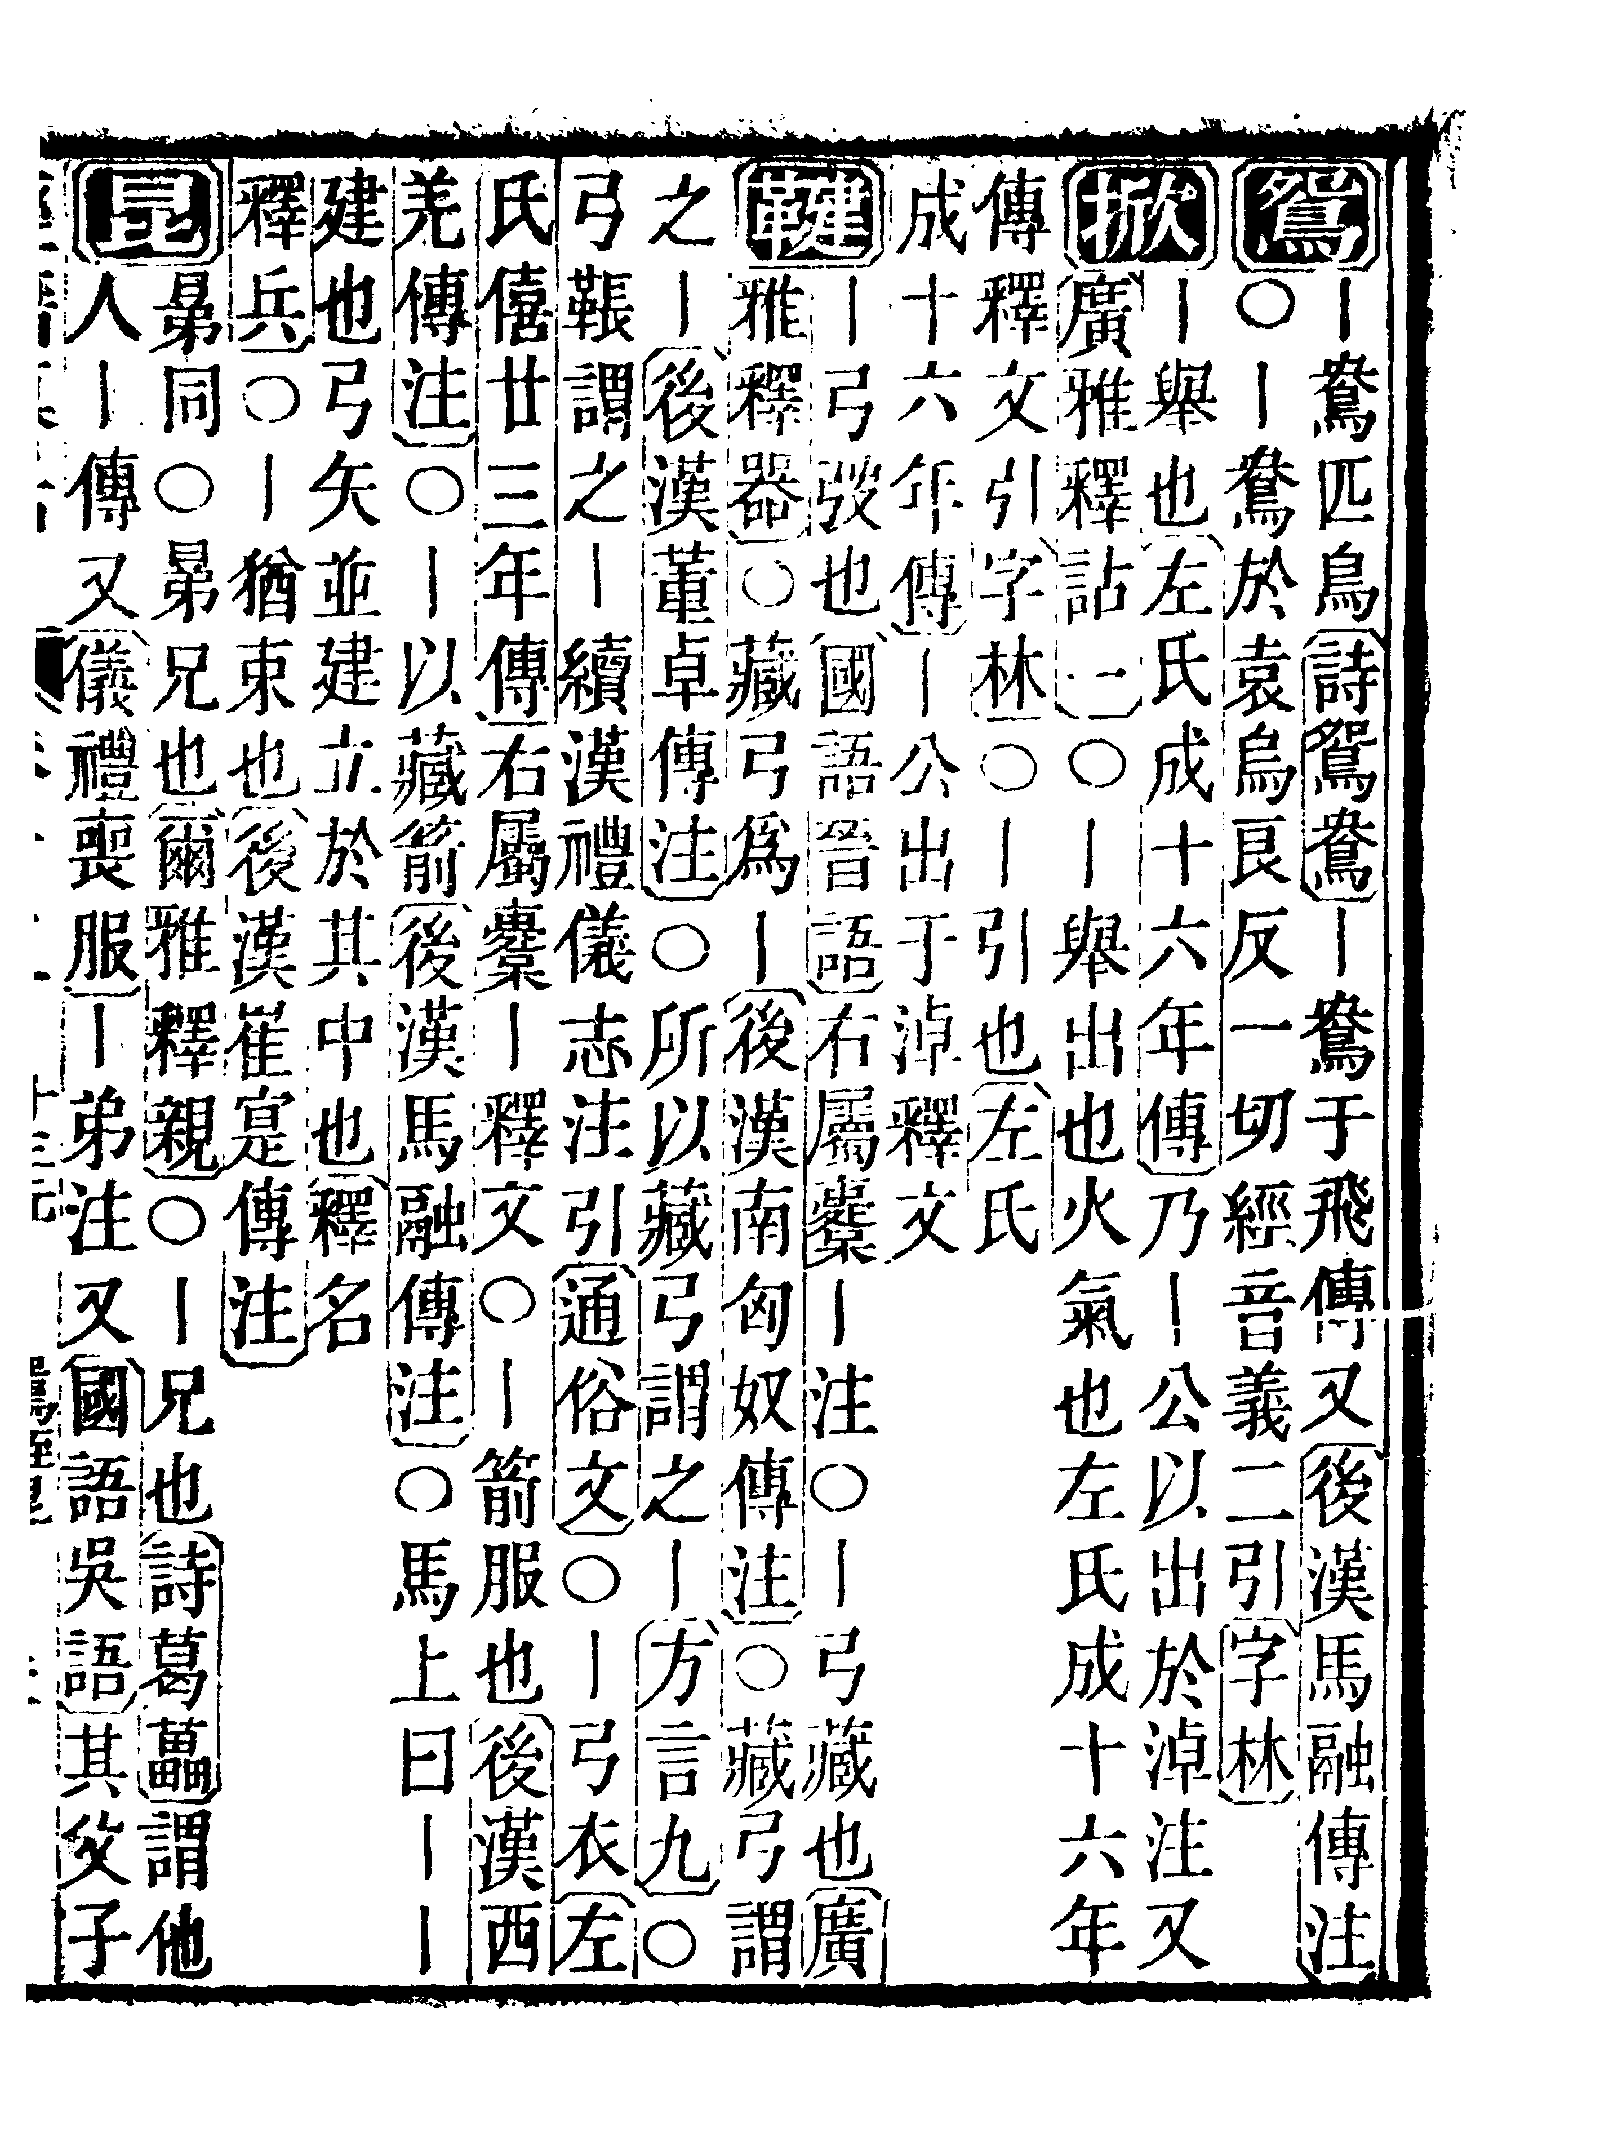 鴛丨鴦匹鳥詩鴛鴦丨鴦于飛傳又後漢馬融傳注
〇丨鴦於袁烏良反一切經音義二引字林
掀丨舉也左氏成十六年傳乃丨公以出於淖注又
廣雅釋詁一〇丨舉出也火氣也左氏成十六年
傳釋文引字林〇丨引也左氏
成十六年傳丨公出于淖釋文
鞬丨弓弢也國語晉語右屬櫜丨注〇丨弓藏也廣
雅釋器〇藏弓爲丨後漢南匈奴傳注〇藏弓謂
之丨後漢董卓傳注〇所以藏弓謂之丨方言九〇
弓韔謂之丨續漢禮儀志注引通俗文〇丨弓衣左
氏僖廿三年傳右屬櫜丨釋文〇丨箭服也後漢西
羌傳注〇丨以藏箭後漢馬融傳注〇馬上曰丨丨
建也弓矢並建立於其中也釋名
釋兵〇丨猶束也後漢崔寔傳注
昆晜同〇晜兄也爾雅釋親〇丨兄也詩葛藟謂他
人丨傳又儀禮喪服丨弟注又國語吳語其父子